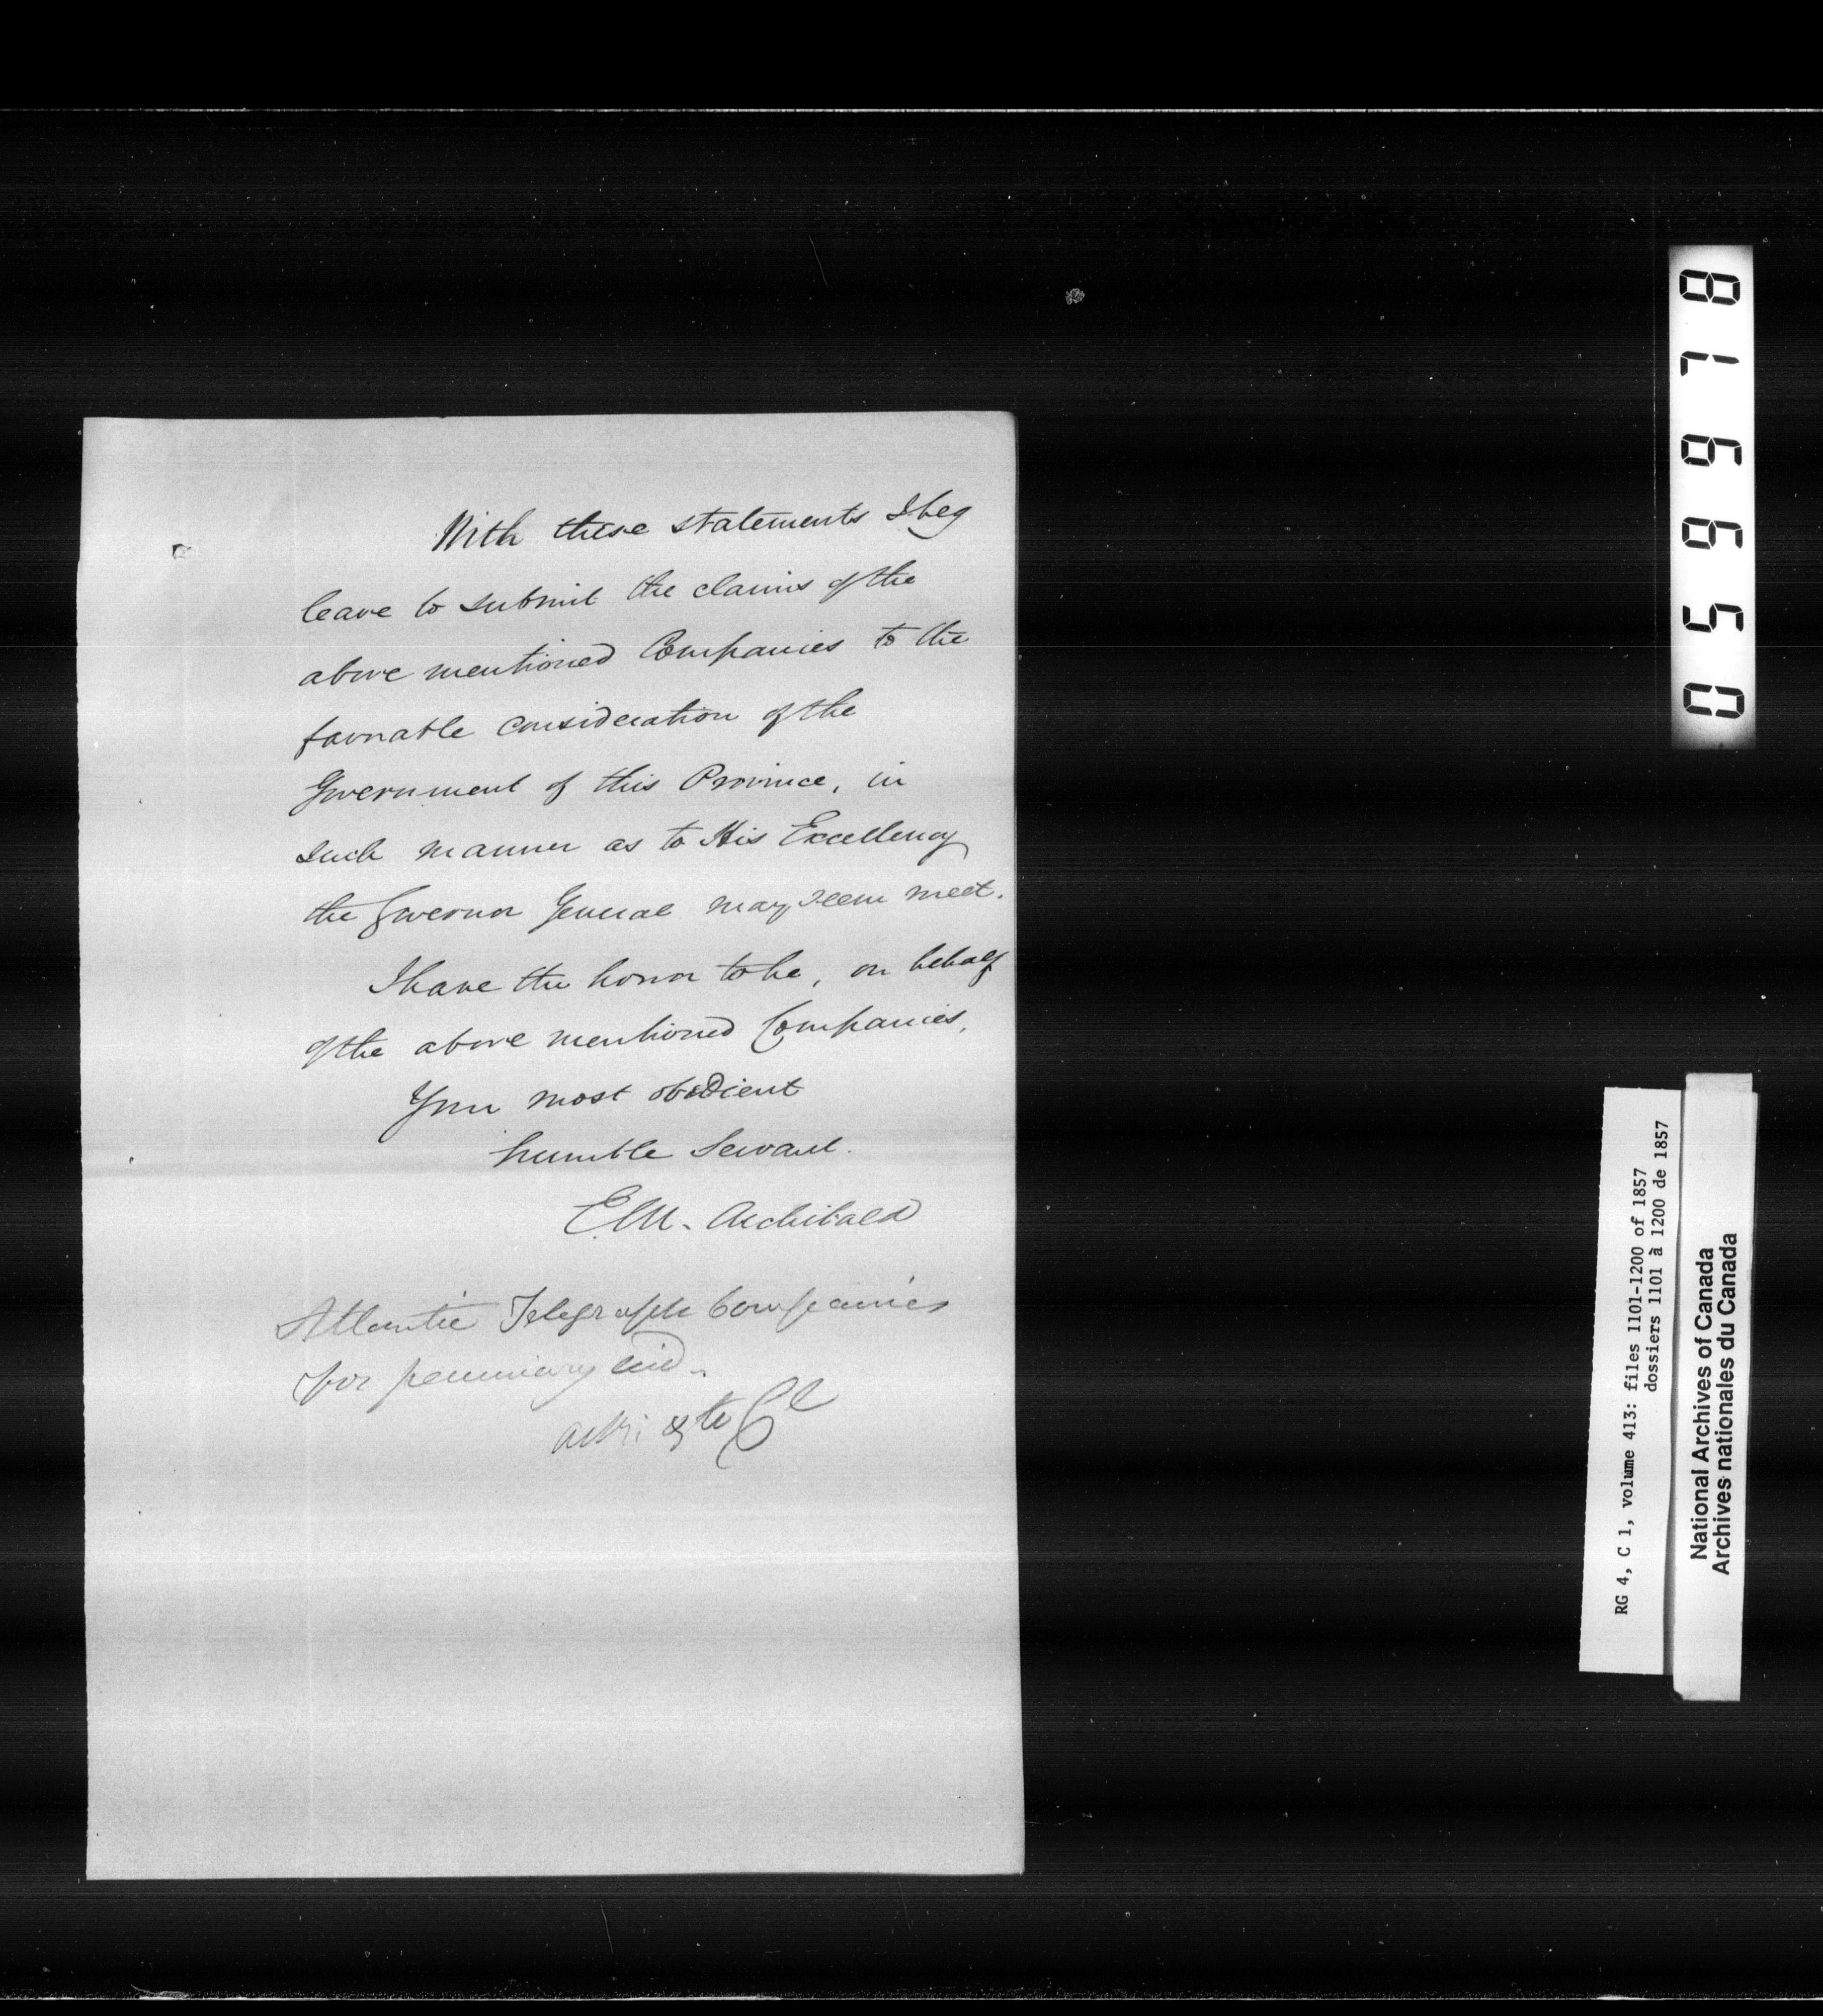 With these statements I beg
leave to submit the claims of the
above mentioned Companies to the
favorable consideration of the
Government of this Province, in
such manner as to His Excellency
the Governor General may seem meet.
I have the honor to be, on behalf
of the above mentioned Companies,
Your most obedient
humble Servant.
E. M. Archibald
Atlantic Telegraph Companies
for pecuniary aid.
RG 4, C 1, volume 413: files 1101-1200 of 1857
dossiers 1101 à 1200 de 1857
National Archives of Canada
Archives nationales du Canada